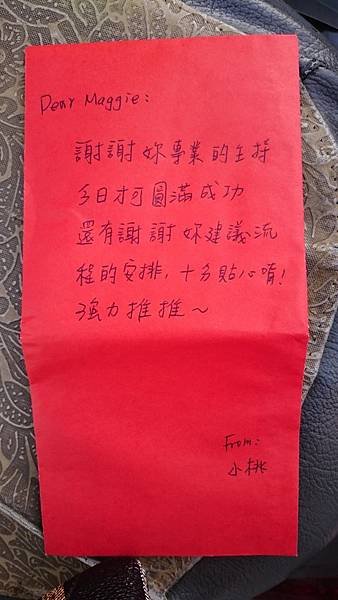 Dear Maggie:
謝謝妳專業的主持
今日才可圓滿成功
還有謝謝妳建議流
程的安排,十分貼心唷!
強力推推～
From:
小桃